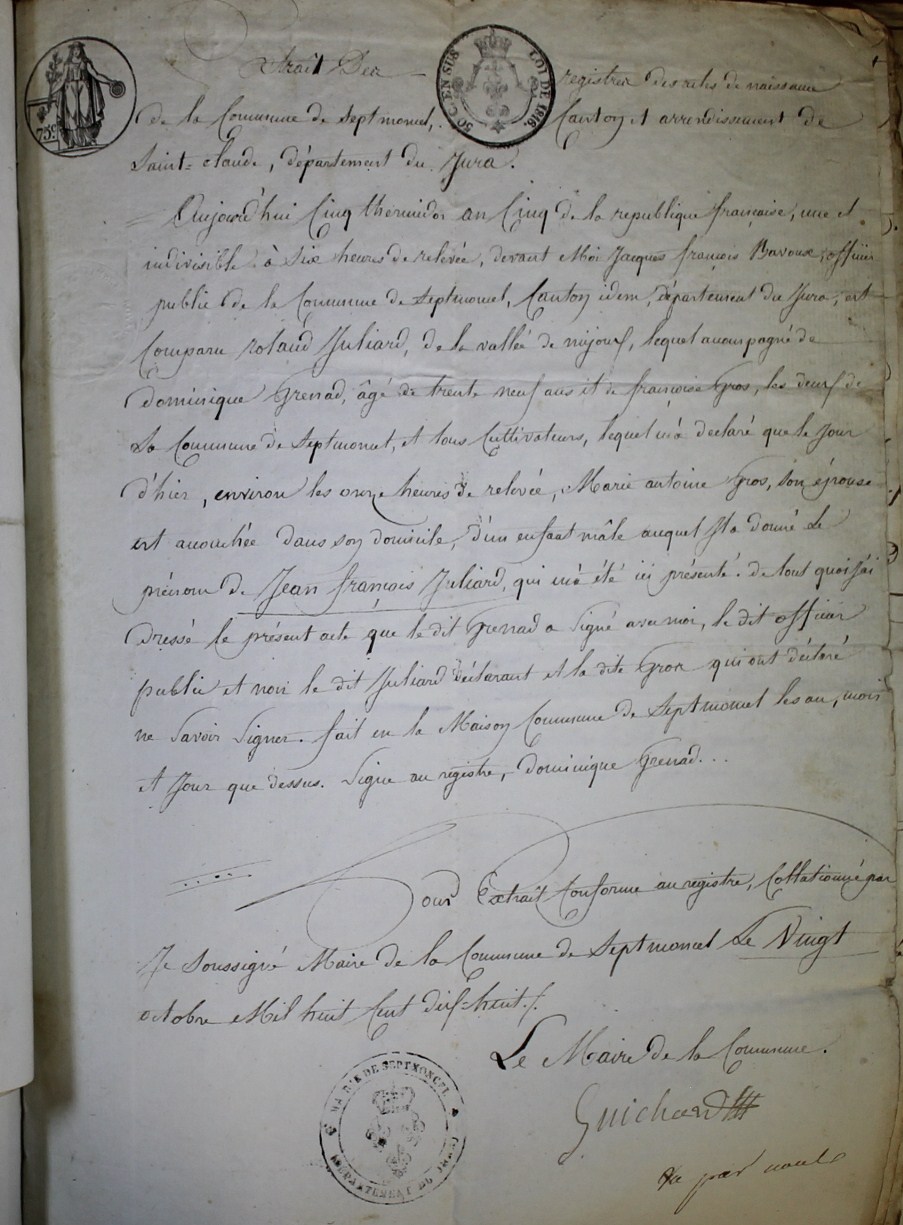 75c
50 C. EN SUS
LOI DE 1816.
Extrait Des registres des actes de naissance
de la Commune de Septmoncel, Canton et arrondissement de
Saint=claude, département du Jura.
Aujourd'hui Cinq thermidor an Cinq de la republique française, une et
indivisible à Six heures de relevée, devant Moi Jacques françois Bavoux, officier
public de la Commune de Septmoncel, Canton idem, département du Jura, est
Comparu roland Juliard, de la vallée de mijoux, lequel accompagné de
dominique Grenad, âgé de trente neuf ans et de françoise Gros, les deux de
la Commune de Septmoncel, et tous Cultivateurs, lequel m'a declaré que le Jour
d'hier, environ les onze heures de relevée, Marie antoine Gros, son épouse
est accouchée dans son domicile, d'un enfant mâle auquel Il a donné le
prénom de Jean françois Juliard, qui m'a été ici présenté. de tout quoi J'ai
Dressé le présent acte que le dit Grenad a Signé avec moi, le dit officier
public et non le dit Juliard déclarant et la dite Gros qui ont déclaré
ne Savoir Signer. fait en la Maison Commune de Septmoncel les an, mois
et Jour que dessus. Signé au registre, dominique Grenad...
Pour Extrait Conforme au registre, Collationné par
Je Soussigné Maire de la Commune de Septmoncel Le Vingt
octobre Mil huit Cent dix=huit./.
Le Maire de la Commune.
Guichard
MAIRIE DE SEPTMONCEL
DEPARTEMENT DU JURA
Vu par nous